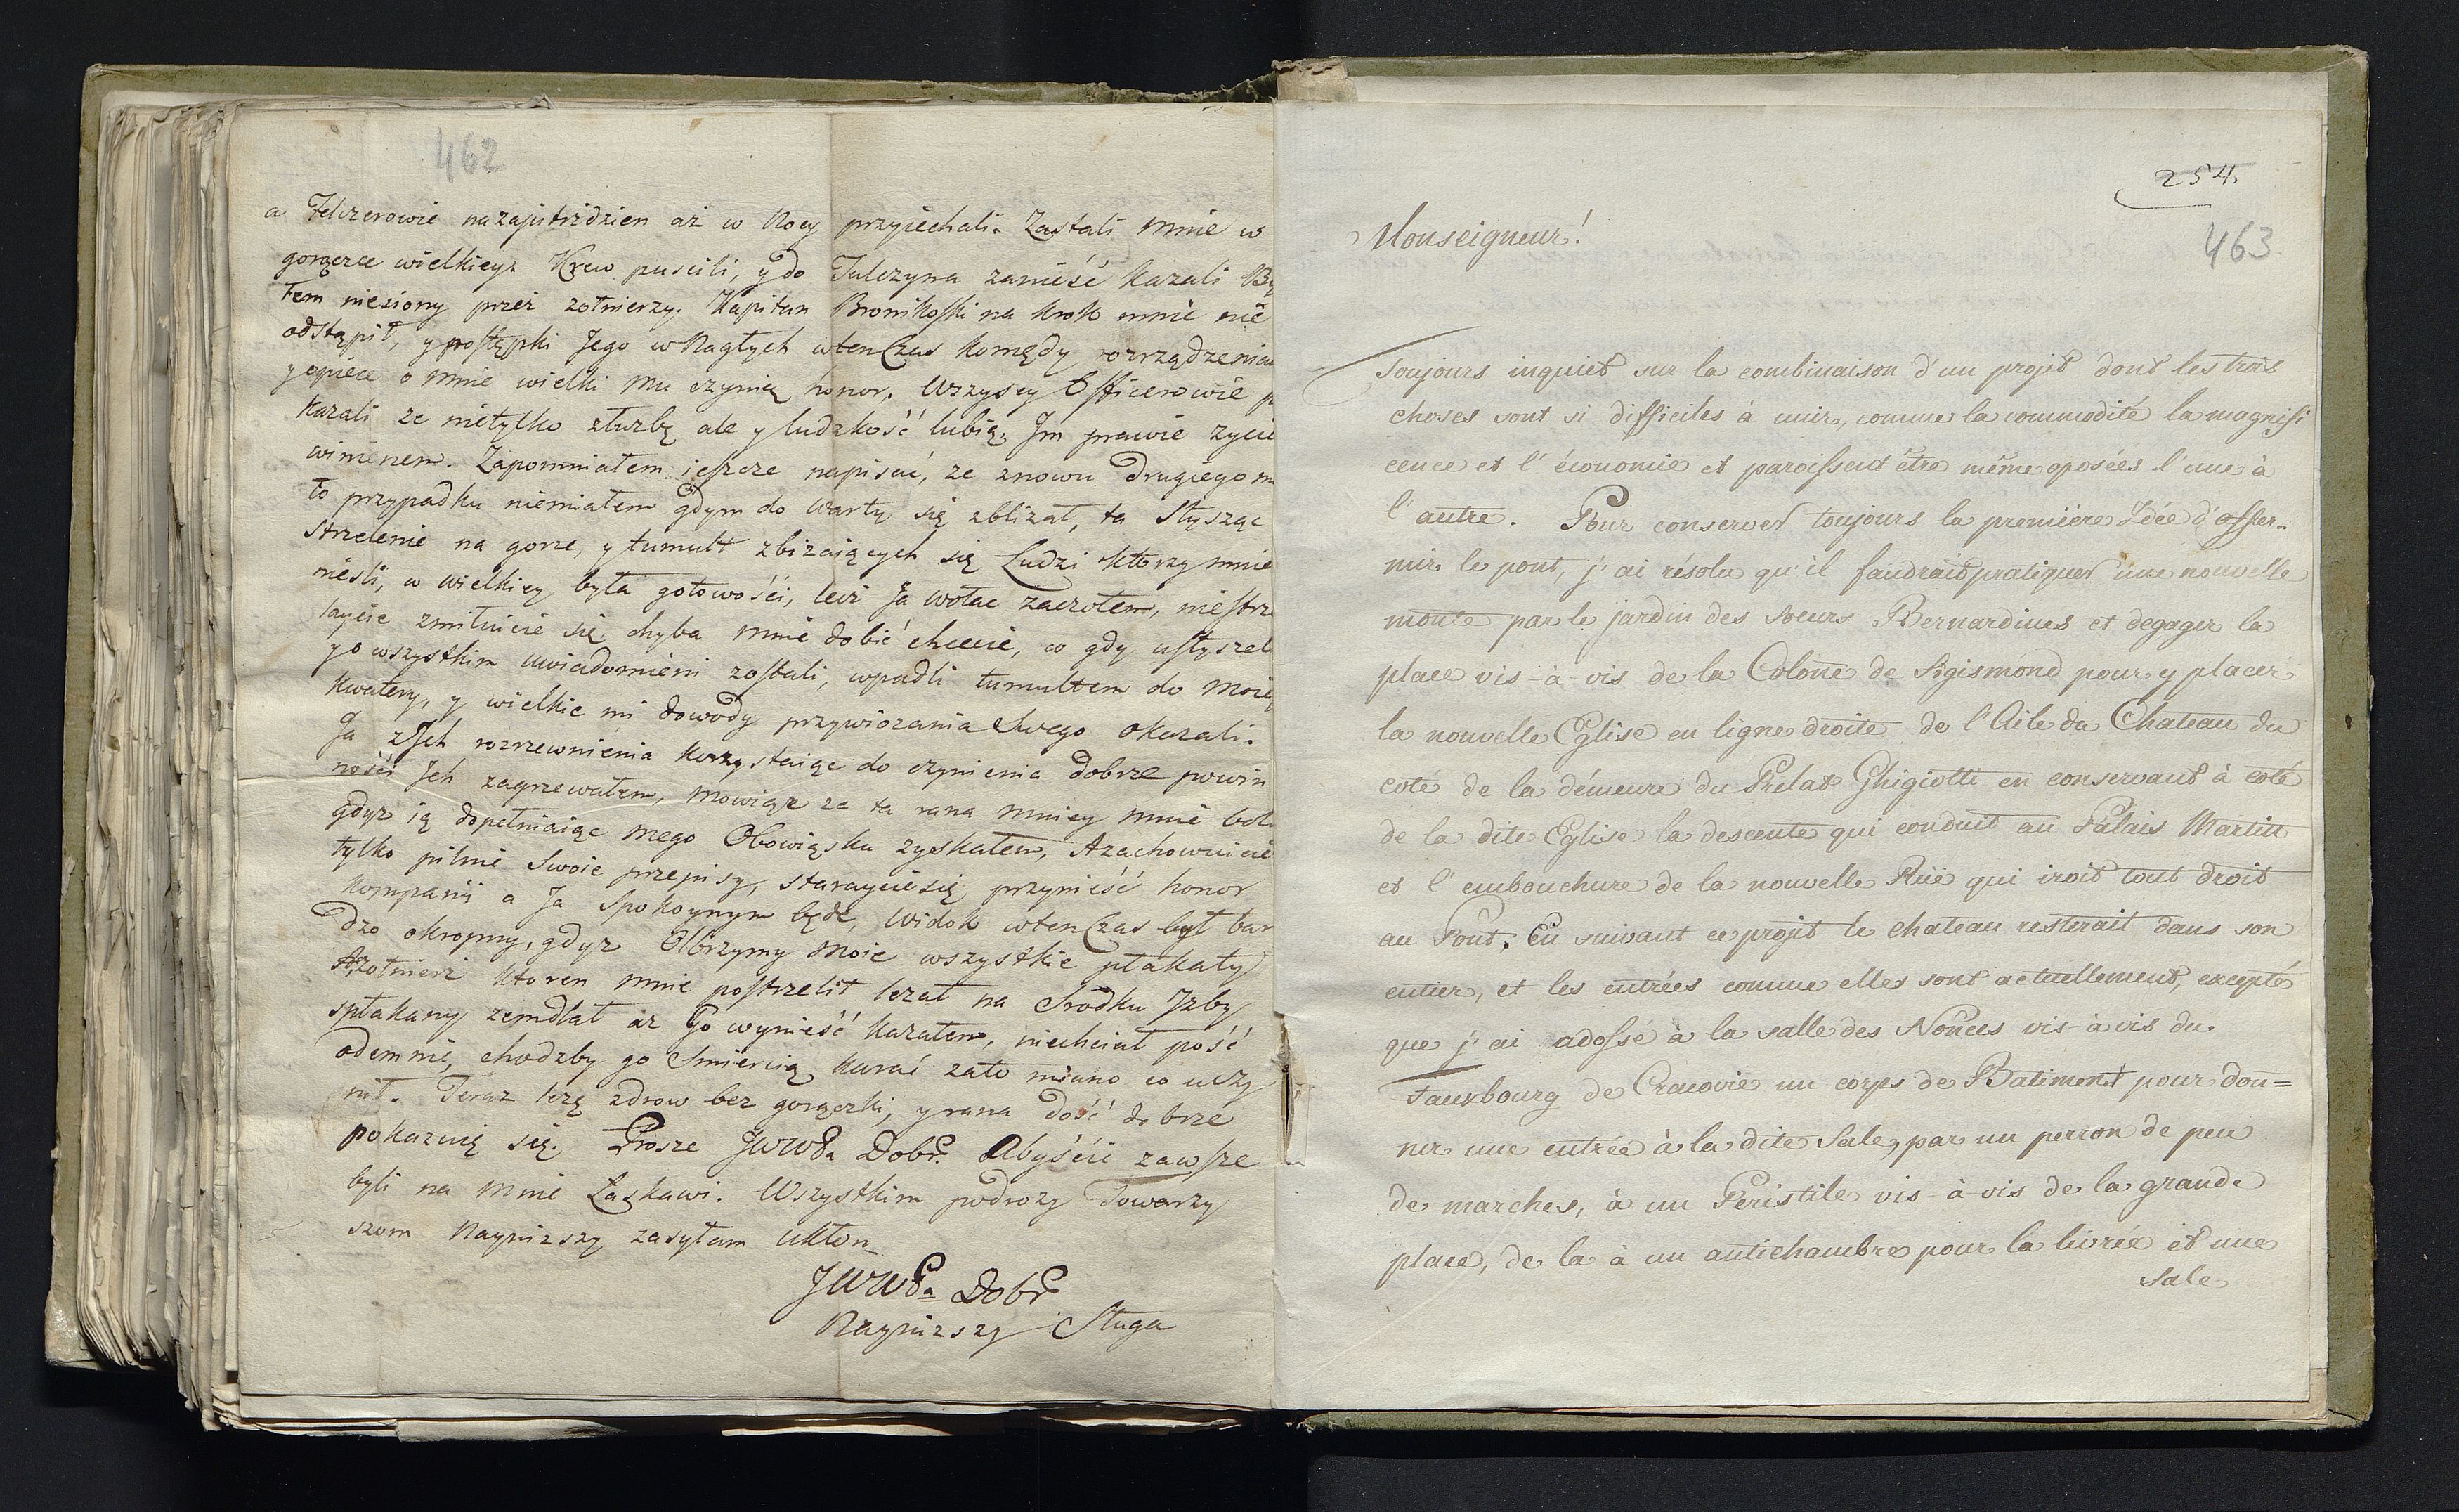 462
a Felczerowie nazajutrzdzien aż w Nocy przyjechali. Zastali mnie w
gorącce wielkiey. Krew puscili, y do Tulczyna zanieść kazali By
łem niesiony przez zołnierzy. Kapitan Bronikoski na krok mnie nie
odstąpił, y postępki Jego w Nagłych wtenczas komędy rozrządzenia
y opiece o mnie wielki mu czynią honor. Wszyscy Officerowie p
kazali ze nietylko służbę ale y ludzkość lubią, Jm prawie zycie
winienem. Zapomniałem ieszcze napisać, ze znowu drugiego m
to przypadku niemiałem gdym do warty się zblizał, ta Słysząc
strzelenie na gorze, y tumult zbizaiących się Ludzi ktorzy mnie
niesli, w wielkiey była gotowości, lecz Ja wołac zaczołem, niestrze
laycie zmiłuicie się, chyba mnie dobić chcecie, co gdy usłyszel
yo wszystkim uwiadomieni zostali, wpadli tumultem do moiey
kwatery, y wielkie mi dowody przywiozania swego okazali.
Ja z Jch rozrzewnienia korzystaiąc do czynienia dobrze powin
ności Jch zagrzewałem, mowiąc ze ta rana mniey mnie boli
gdyz ią dopełniaiąc mego Obowiązku zyskałem, Azachowuicie
tylko pilnie Swoie przepisy, starayciesię przynieść honor
kompanij a Ja Spokoynym będę, Widok wtenczas był bar
dzo okropny, gdyz Olbrzymy moie wszystkie płakały
Azołnierz ktoren mnie postrzelił lezał na Srodku Jzby
spłakany zemdlał az Go wynieść kazałem, niechciał pość
odemnie, chodzby go Smiercią karać zato miano co uczy
nił. Teraz lezę zdrow bez gorączki, y rana dość dobrze
pokazuię się. Prosze JWWPa Dobr. Abyście zawsze
byli na mnie Łaskawi. Wszystkim podrozy Towarzy
szom Nayniższy zasyłam Ukłon
JWWPa Dobr
Nayniższy Sługa
254.
463.
Monseigneur!
Toujours inquiet sur la combinaison d'un projet dont les trois
choses sont si difficiles à unir, comme la commodité la magnifi
cence et l'économie et paroissent être même oposées l'une à
l'autre. Pour conserver toujours la première Idée d'affer-
mir le pont, j'ai résolu qu'il faudrait pratiquer une nouvelle
monte par le jardin des soeurs Bernardines et degager la
place vis-à-vis de la Colone de Sigismond pour y placer
la nouvelle Eglise en ligne droite de l'Aile du Chateau du
coté de la démeure du Prelat Ghigiotti en conservant à coté
de la dite Eglise la descente qui conduit au Palais Martin
et l'embouchure de la nouvelle Rüe qui iroit tout droit
au Pont. En suivant ce projet le chateau resterait dans son
entier, et les entrées comme elles sont actuellement, excepté
que j'ai adossé à la salle des Nonces vis-à vis du
Fauxbourg de Cracovie un corps de Batiment pour don=
ner une entrée à la dite Sale, par un perron de peu
de marches, à un Peristile vis-à-vis de la grande
place, de la à un antichambre pour la livrée et une
Sale